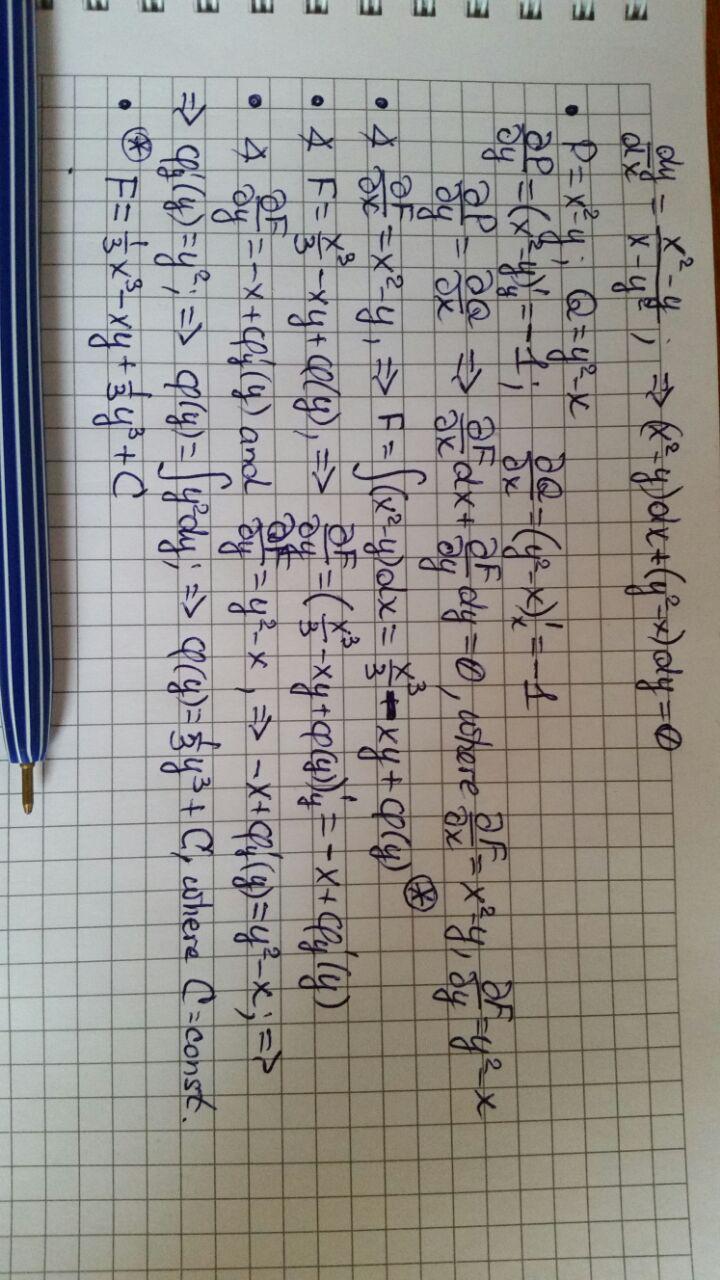 dy/dx = (x²-y)/(x-y²); ⇒ (x²-y)dx+(y²-x)dy=0
• P=x²-y; Q=y²-x
∂P/∂y=(x²-y)'y=-1; ∂Q/∂x=(y²-x)'x=-1
∂P/∂y = ∂Q/∂x ⇒ ∂F/∂x dx+∂F/∂y dy=0, where ∂F/∂x=x²-y, ∂F/∂y=y²-x
• ∀ ∂F/∂x=x²-y, ⇒ F=∫(x²-y)dx=x³/3-xy+φ(y) ⊛
• ∀ F=x³/3-xy+φ(y), ⇒ ∂F/∂y=(x³/3-xy+φ(y))'y=-x+φ'y(y)
• ∀ ∂F/∂y=-x+φ'y(y) and ∂F/∂y=y²-x, ⇒ -x+φ'y(y)=y²-x; ⇒
⇒ φ'y(y)=y²; ⇒ φ(y)=∫y²dy; ⇒ φ(y)=1/3y³+C, where C=const.
• ⊛ F=1/3x³-xy+1/3y³+C